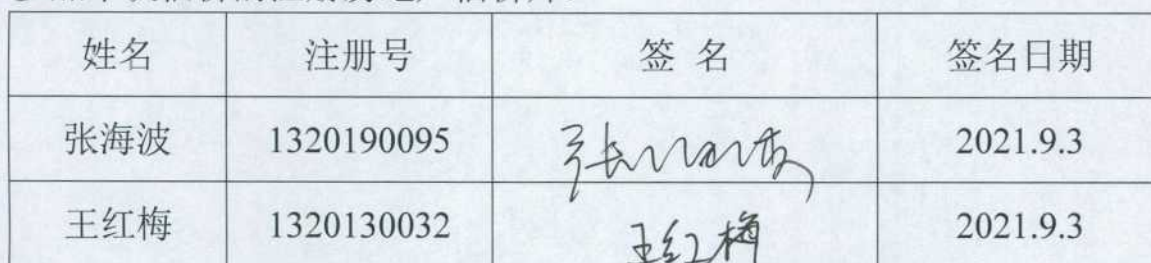 姓名 注册号 签 名 签名日期
张海波 1320190095 张海波 2021.9.3
王红梅 1320130032 王红梅 2021.9.3